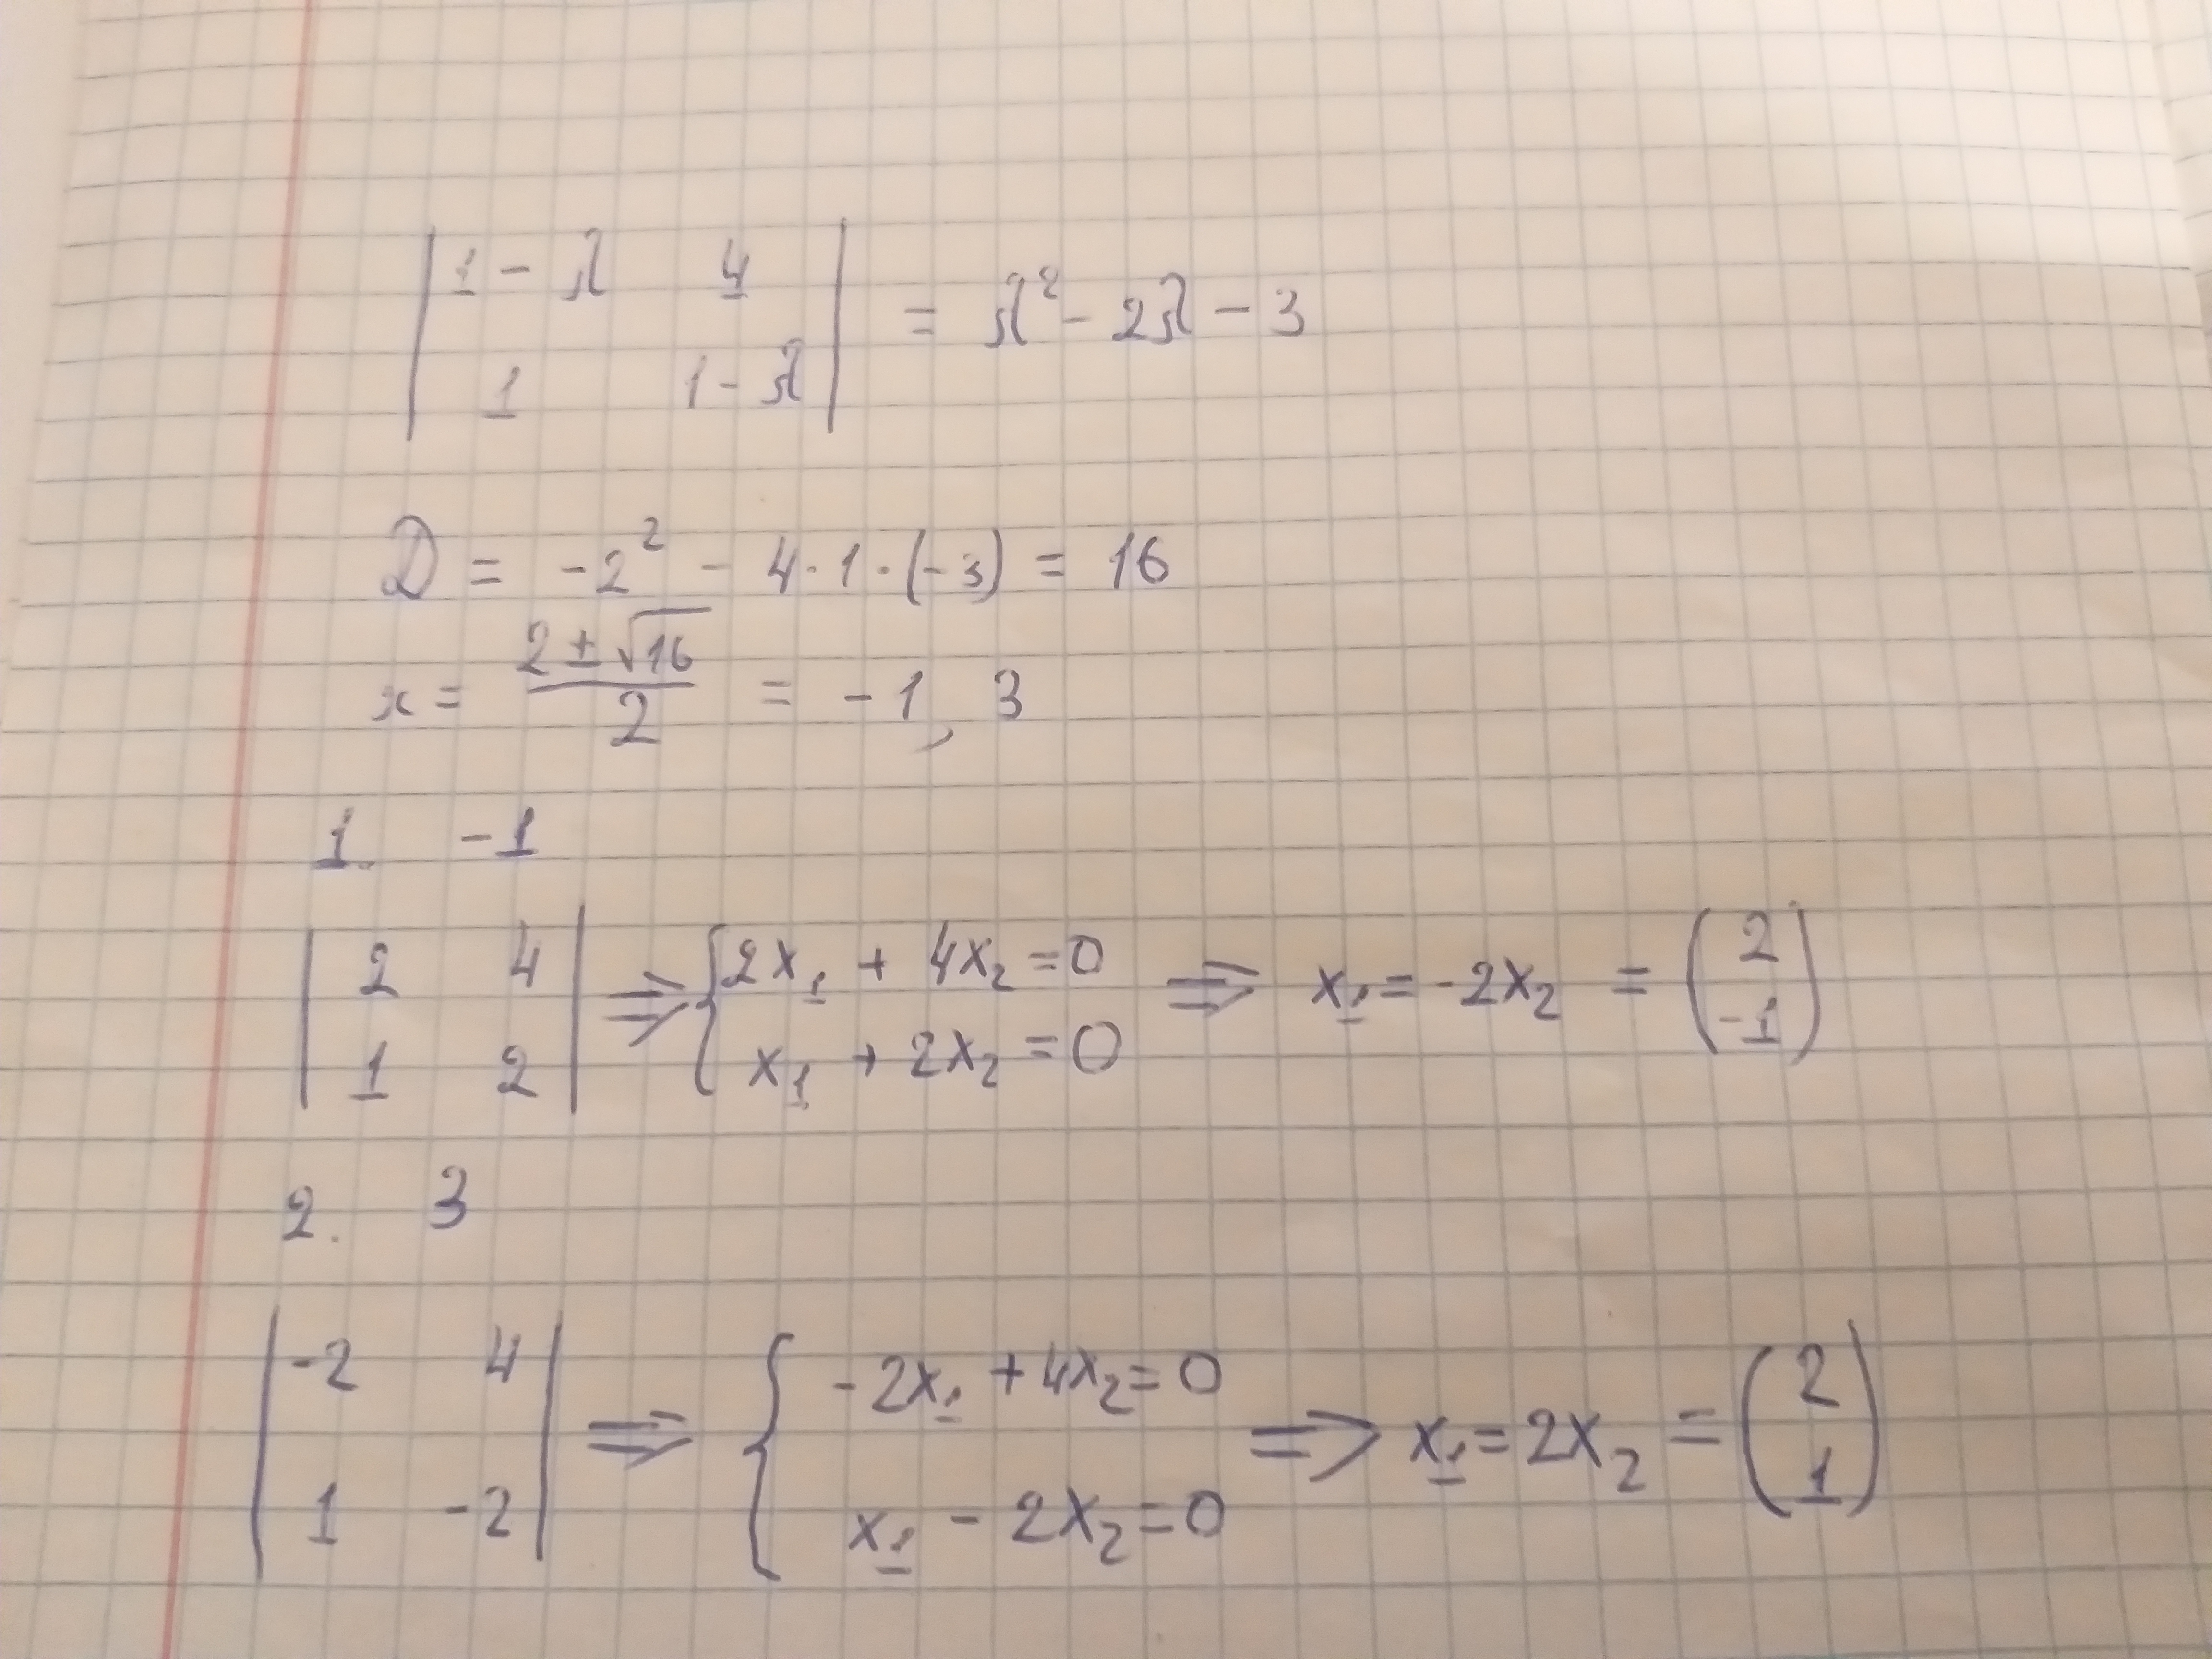 | 1 - λ 4 |
| 1 1 - λ | = λ² - 2λ - 3
D = -2² - 4 · 1 · (-3) = 16
x = (2 ± √16) / 2 = -1, 3
1. -1
| 2 4 | ⇒ { 2x₁ + 4x₂ = 0 ⇒ x₁ = -2x₂ = ( 2
| 1 2 | { x₁ + 2x₂ = 0 -1 )
2. 3
| -2 4 | ⇒ { -2x₁ + 4x₂ = 0 ⇒ x₁ = 2x₂ = ( 2
| 1 -2 | { x₁ - 2x₂ = 0 1 )